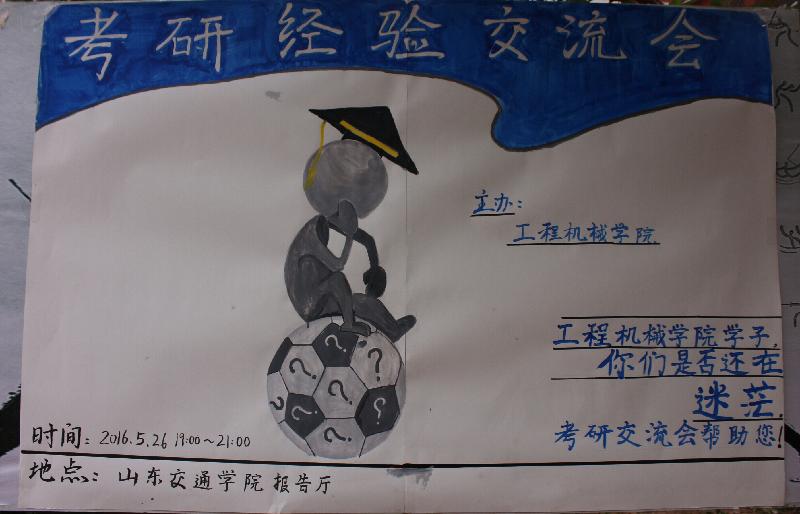 考研经验交流会
主办:
工程机械学院
工程机械学院学子,
你们是否还在
迷茫
考研交流会帮助您!
? ? ? ? ? ? ?
时间: 2016.5.26 19:00~21:00
地点: 山东交通学院报告厅